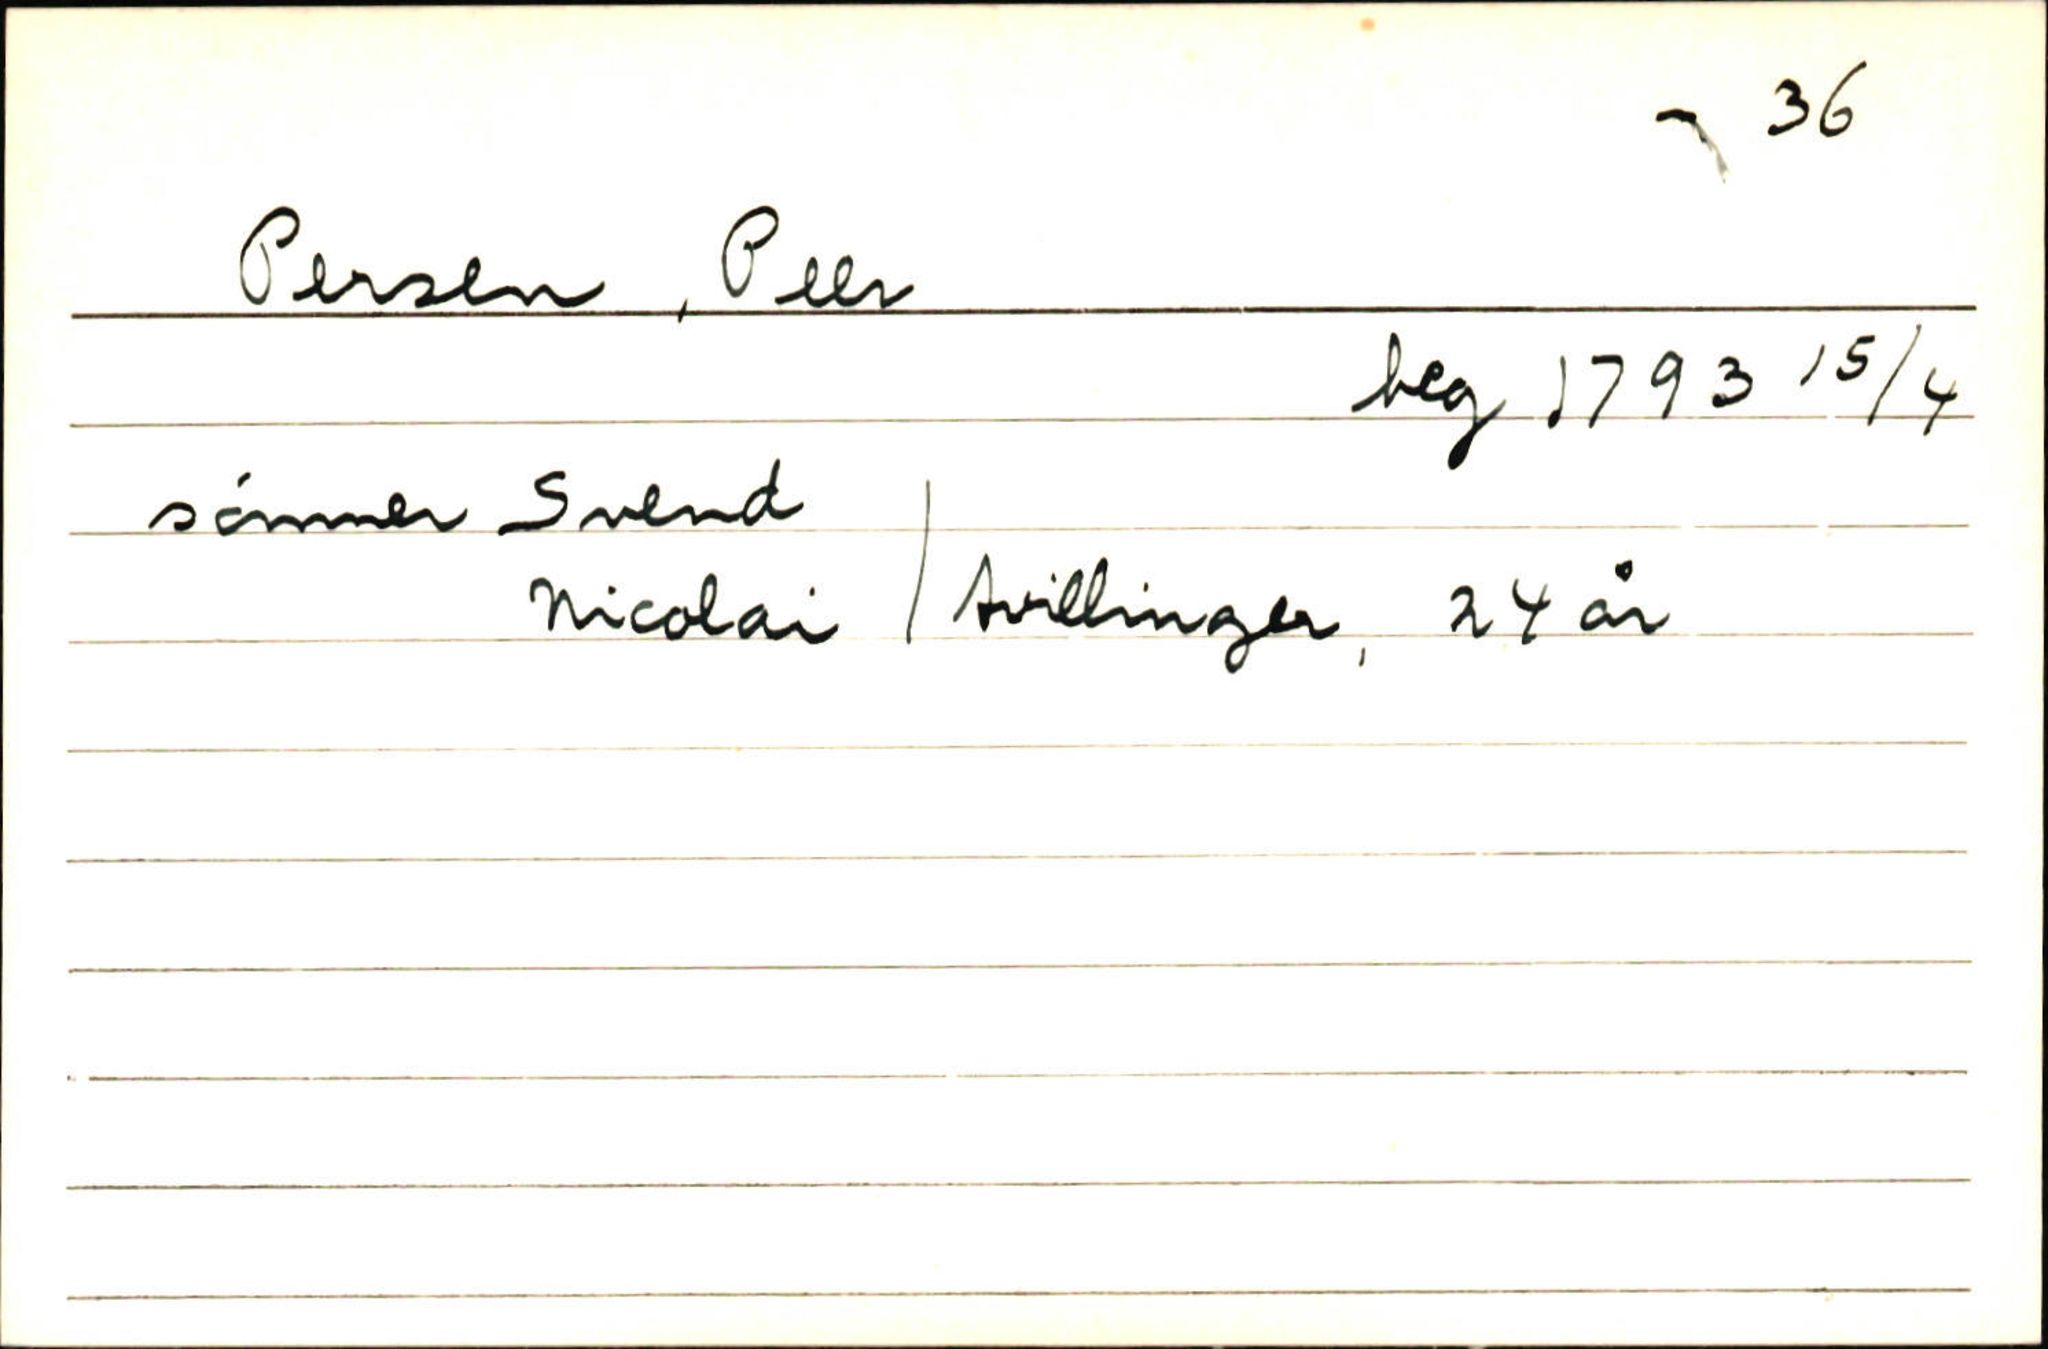 36
Persen, Peer
beg 1793 15/4
sønner Svend
Nicolai / tvillinger, 24 år